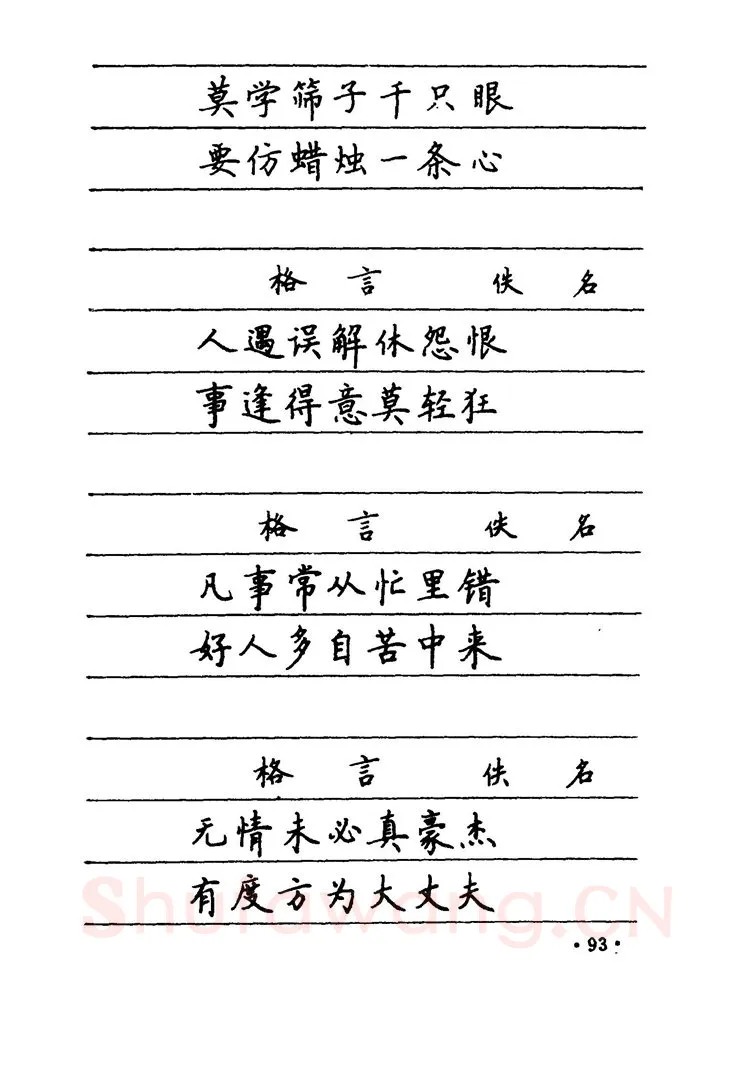 莫学筛子千只眼
要仿蜡烛一条心
格言 佚名
人遇误解休怨恨
事逢得意莫轻狂
格言 佚名
凡事常从忙里错
好人多自苦中来
格言 佚名
无情未必真豪杰
有度方为大丈夫
Shufawang.CN
·93·